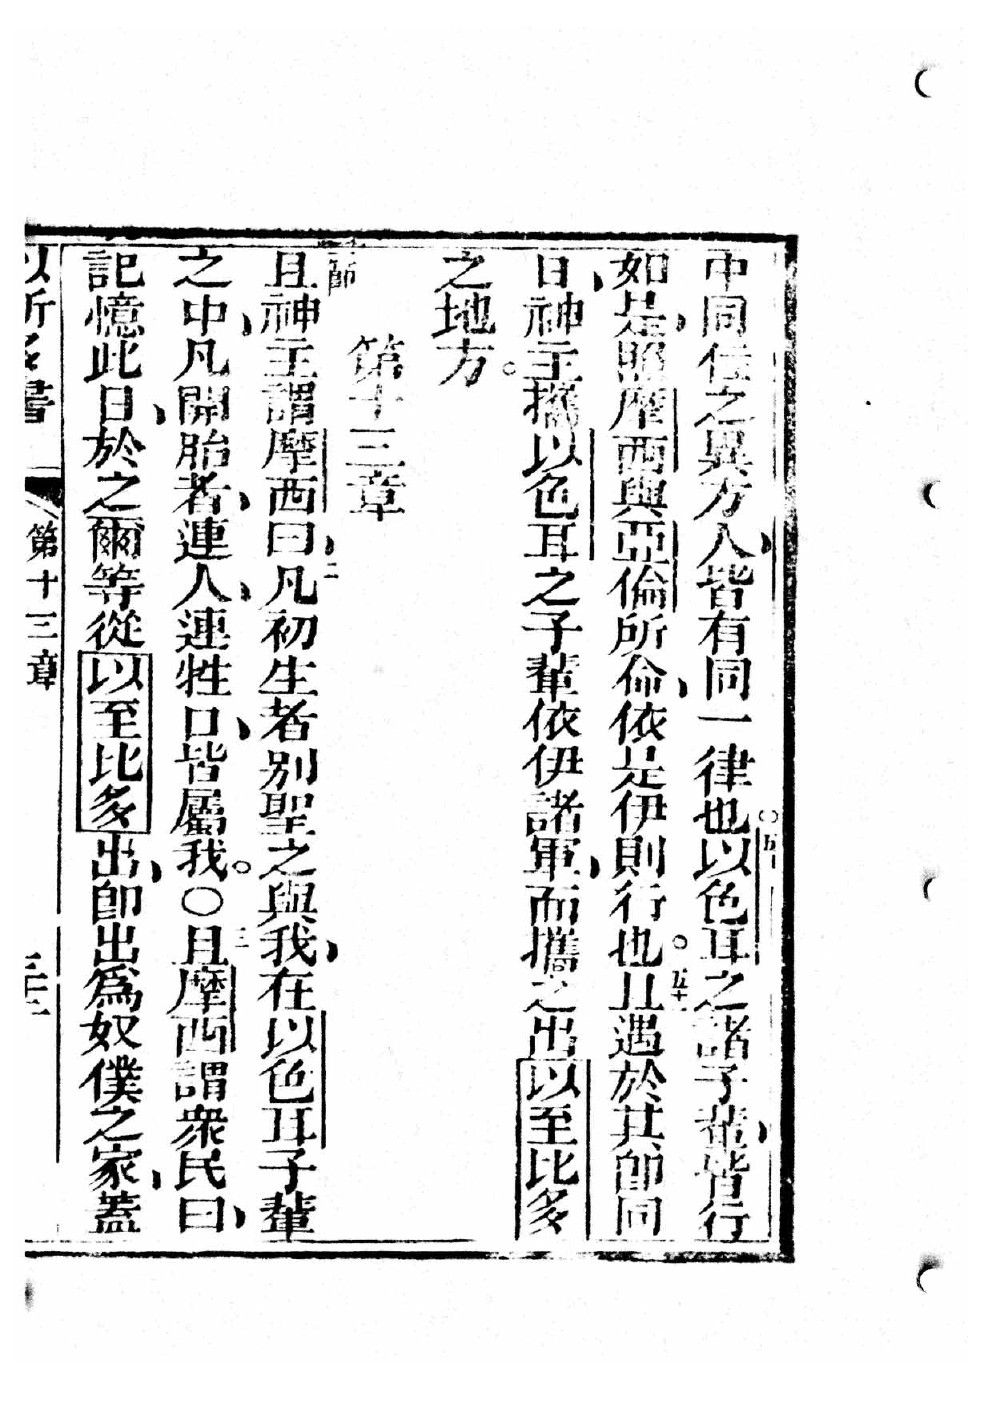 中同住之異方人皆有同一律也。五十以色耳之諸子輩皆行
如是照摩西與亞倫所命依是伊則行也。五十一且遇於其卽同
日神主攜以色耳之子輩依伊諸軍而攜之出以至比多
之地方。
第十三章
一節
且神主謂摩西曰二凡初生者別聖之與我在以色耳子輩
之中凡開胎者連人連牲口皆屬我。〇三且摩西謂衆民曰
記憶此日於之爾等從以至比多出卽出爲奴僕之家蓋
以所多書
第十三章